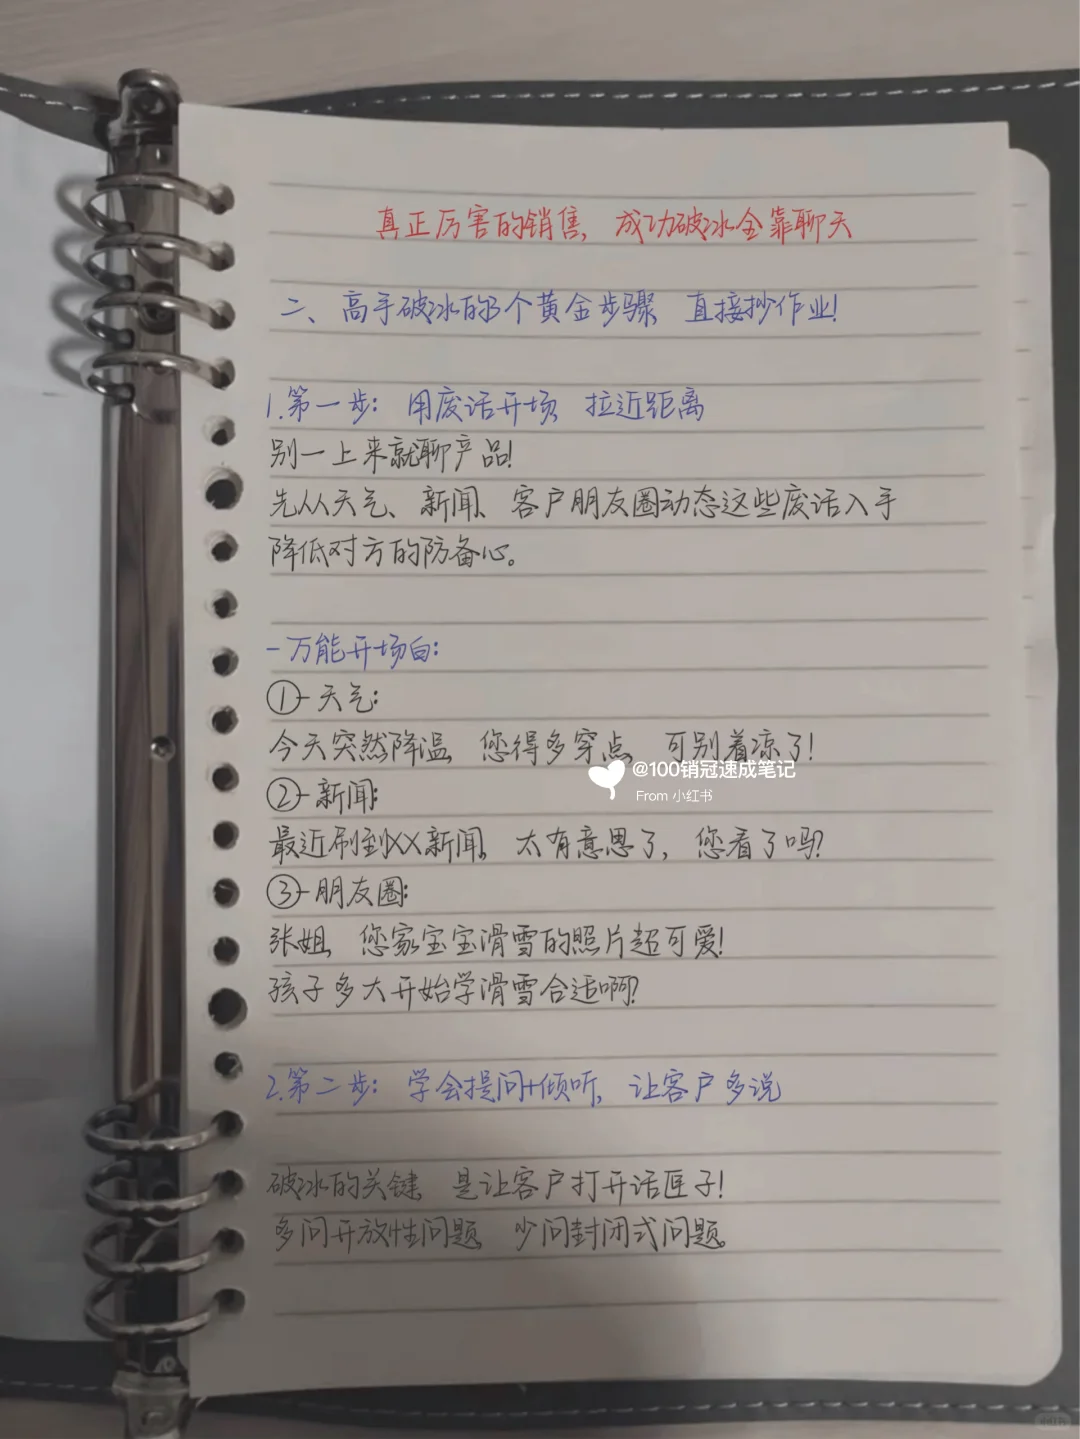 真正厉害的销售，成功破冰全靠聊天
二、高手破冰的3个黄金步骤，直接抄作业！
1.第一步：用废话开场，拉近距离
别一上来就聊产品！
先从天气、新闻、客户朋友圈动态这些废话入手
降低对方的防备心。
-万能开场白：
①-天气：
今天突然降温，您得多穿点，可别着凉了！
@100销冠速成笔记
From 小红书
②-新闻：
最近刷到XX新闻，太有意思了，您看了吗？
③-朋友圈：
张姐，您家宝宝滑雪的照片超可爱！
孩子多大开始学滑雪合适啊？
2.第二步：学会提问+倾听，让客户多说
破冰的关键，是让客户打开话匣子！
多问开放性问题，少问封闭式问题。